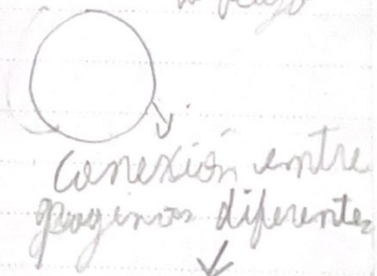 Conexión entre
paginas diferentes